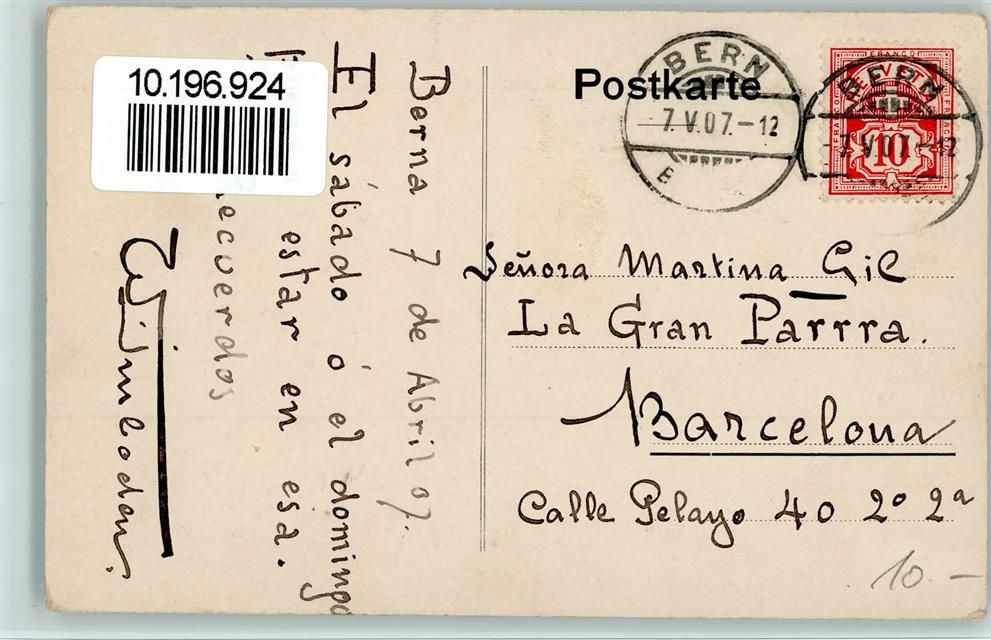 10.196.924
Postkarte
BERN
7.V.07.-12
BERN
7.V.07.-12
FRANCO
HELVETIA
10
Berna 7 de Abril 07.
El sábado ó el domingo
estar en esa.
Recuerdos
Señora Martina Gil
La Gran Parrra.
Barcelona
Calle Pelayo 40 2º 2ª
10.-